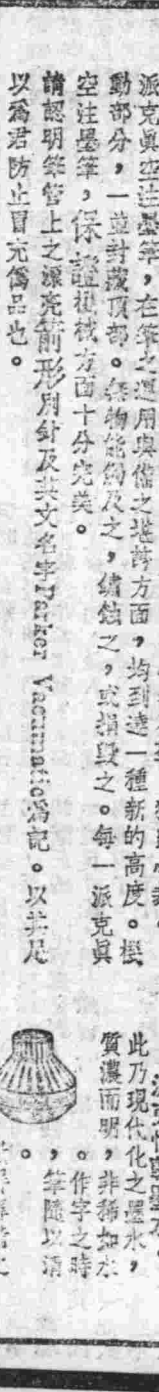 派克眞空注墨筆，在筆之運用與儲之堪誇方面，均到達一種新的高度。機
動部分，一並封藏頂部。無物能觸及之，銹蝕之，或損毀之。每一派克眞
空注墨筆，保證機械方面十分完美。
請認明筆管上之漂亮箭形別針及英文名字Parker Vacumatic爲記。以其足
以爲君防止冒充僞品也。
此乃現代化之墨水，
質濃而明，非稀如水
。作字之時
，筆隨以清